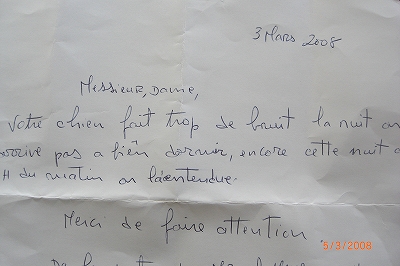 3 Mars 2008
Messieur, Dame,
Votre chien fait trop de bruit la nuit on
arrive pas a bien dormir, encore cette nuit a
H du matin on l'a entendue.
Merci de faire attention
5/3/2008